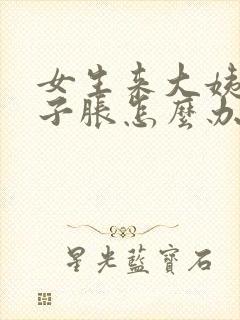 女生来大姨
子胀怎麼办
星光藍寶石